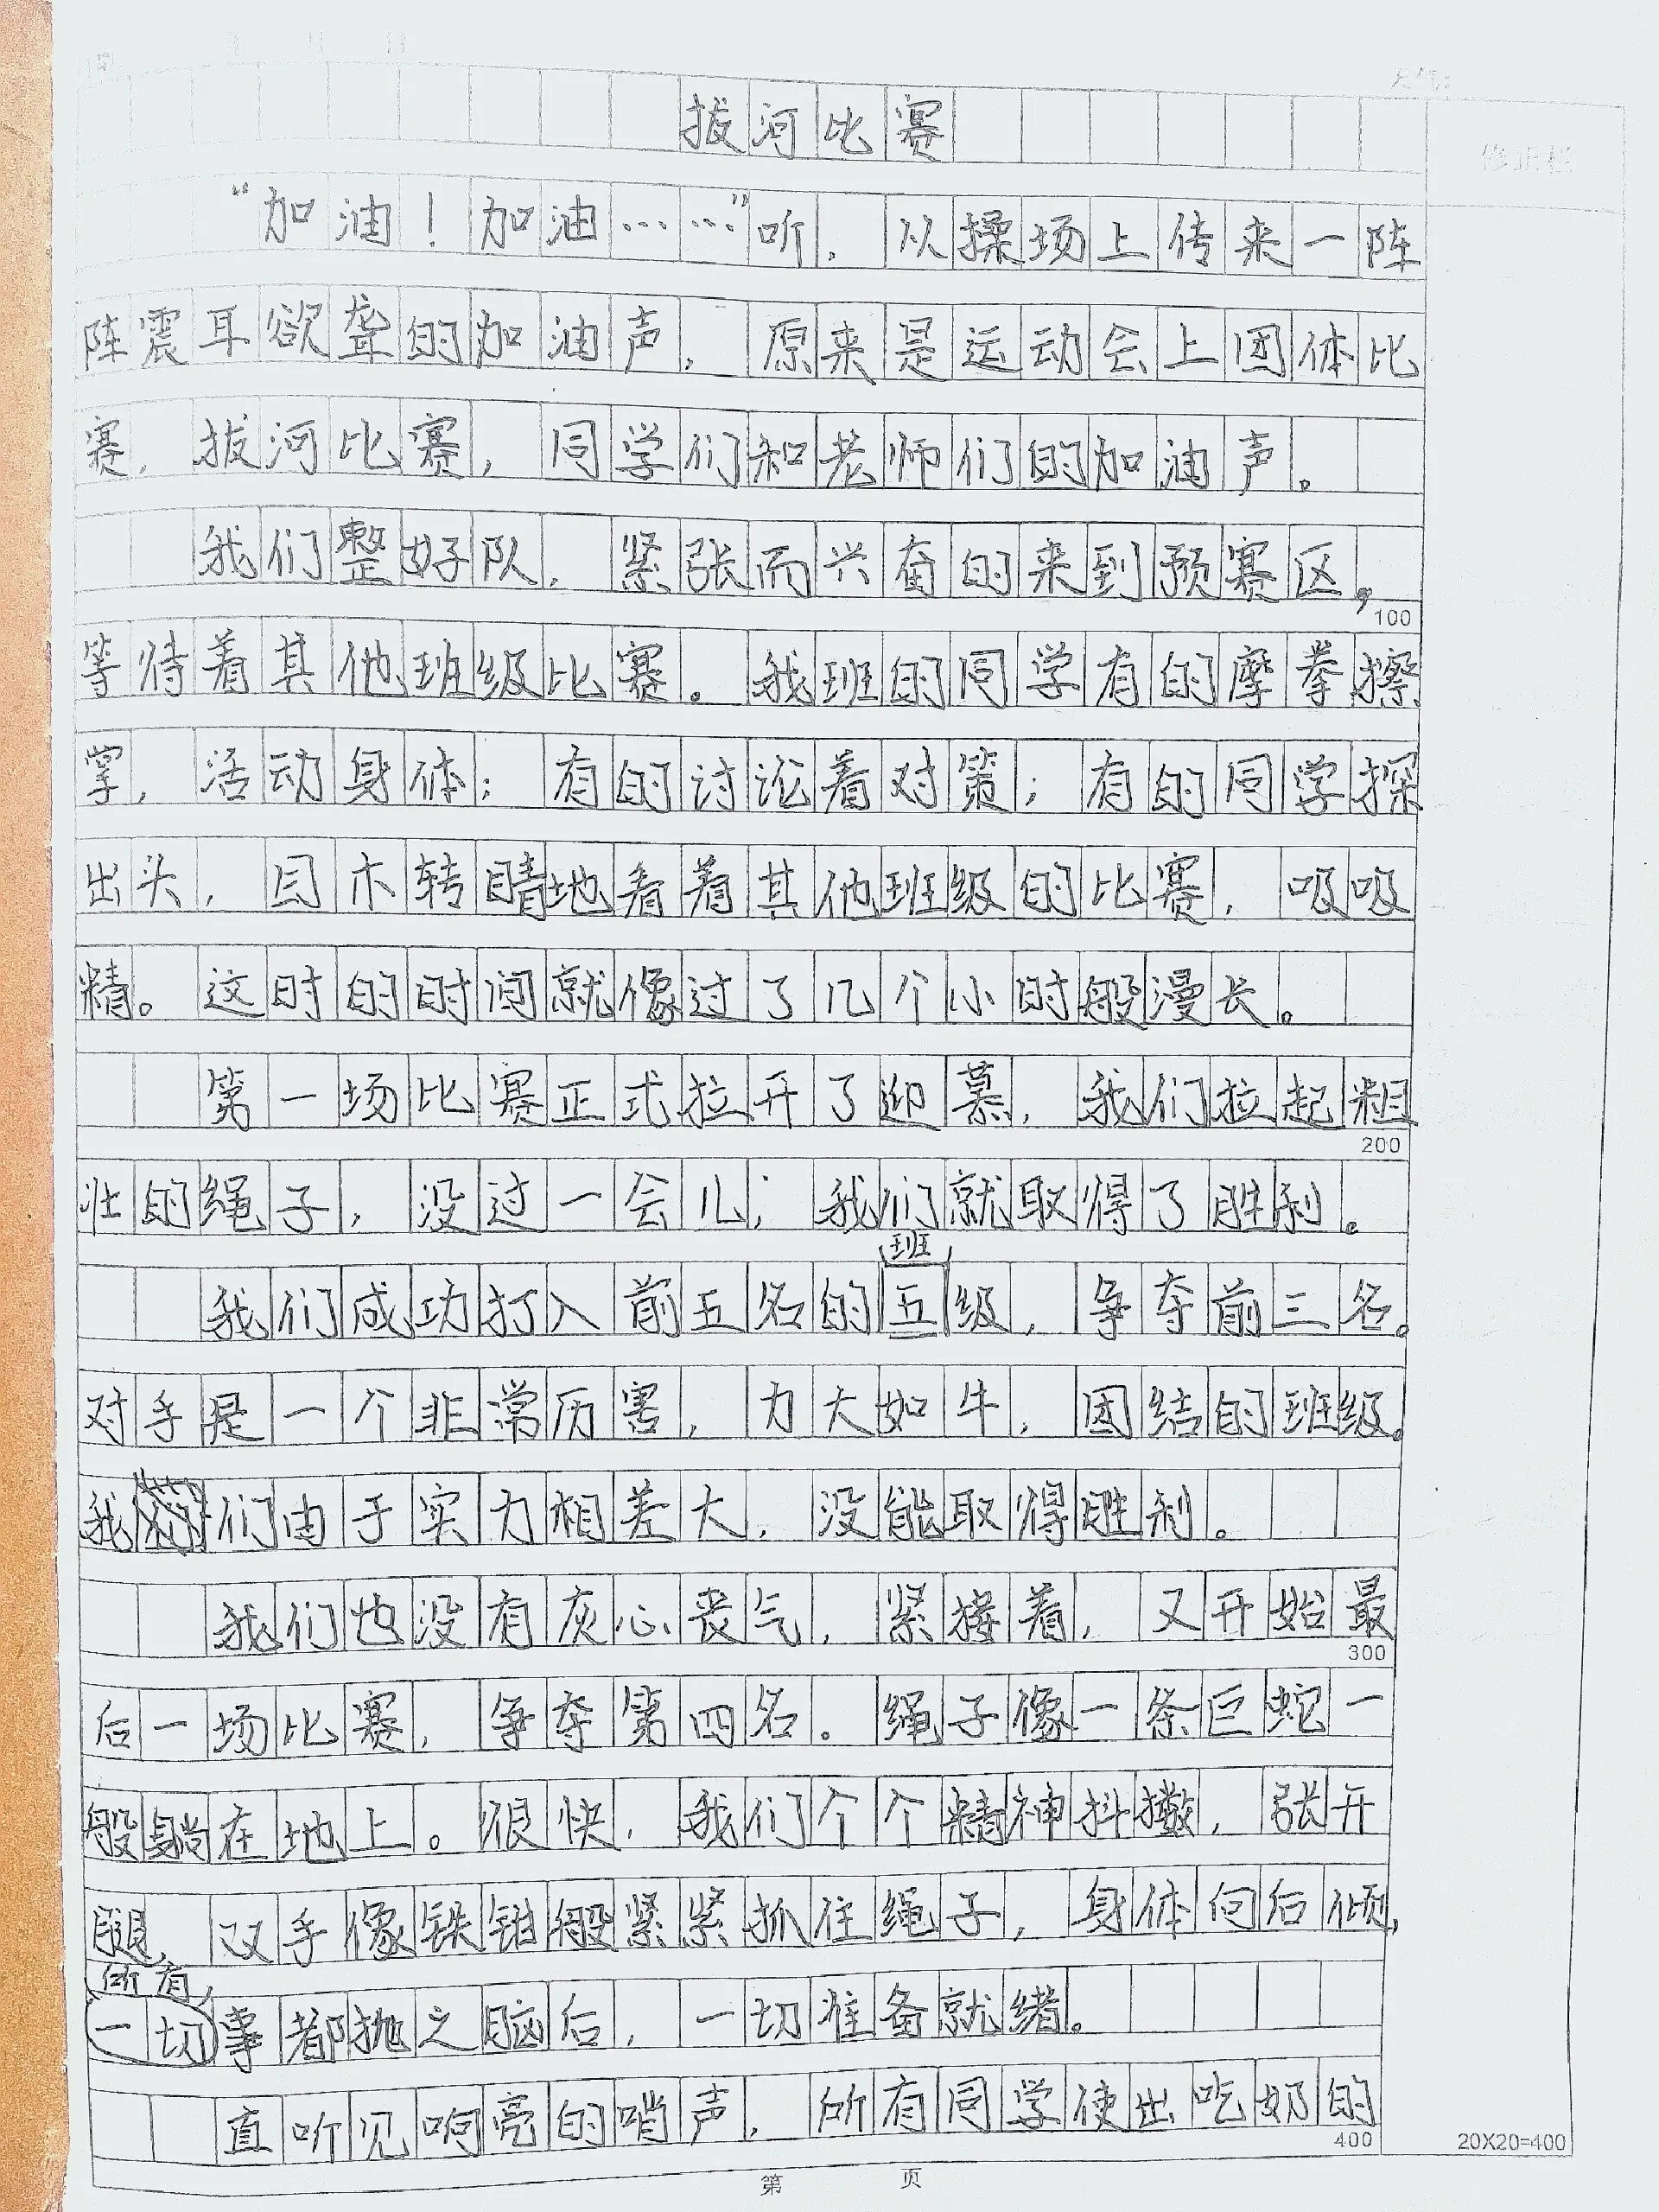 拔河比赛
修正栏
“加油！加油……”听，从操场上传来一阵
阵震耳欲聋的加油声，原来是运动会上团体比
赛，拔河比赛，同学们和老师们的加油声。
我们整好队，紧张而兴奋的来到预赛区，
100
等待着其他班级比赛。我班的同学有的摩拳擦
掌，活动身体；有的讨论着对策；有的同学探
出头，目木转睛地看着其他班级的比赛，吸吸
精。这时的时间就像过了几个小时般漫长。
第一场比赛正式拉开了迎慕，我们拉起粗
200
壮的绳子，没过一会儿，我们就取得了胜利。
班
我们成功打入前五名的五级，争夺前三名。
对手是一个非常历害，力大如牛，团结的班级。
我们由于实力相差大，没能取得胜利。
我们也没有灰心丧气，紧接着，又开始最
300
后一场比赛，争夺第四名。绳子像一条巨蛇一
般躺在地上。很快，我们个个精神抖擞，张开
腿，双手像铁钳般紧紧抓住绳子，身体向后倾，
所有，
一切事都抛之脑后，一切准备就绪。
直听见响亮的哨声，所有同学使出吃奶的
400
20X20=400
第 页